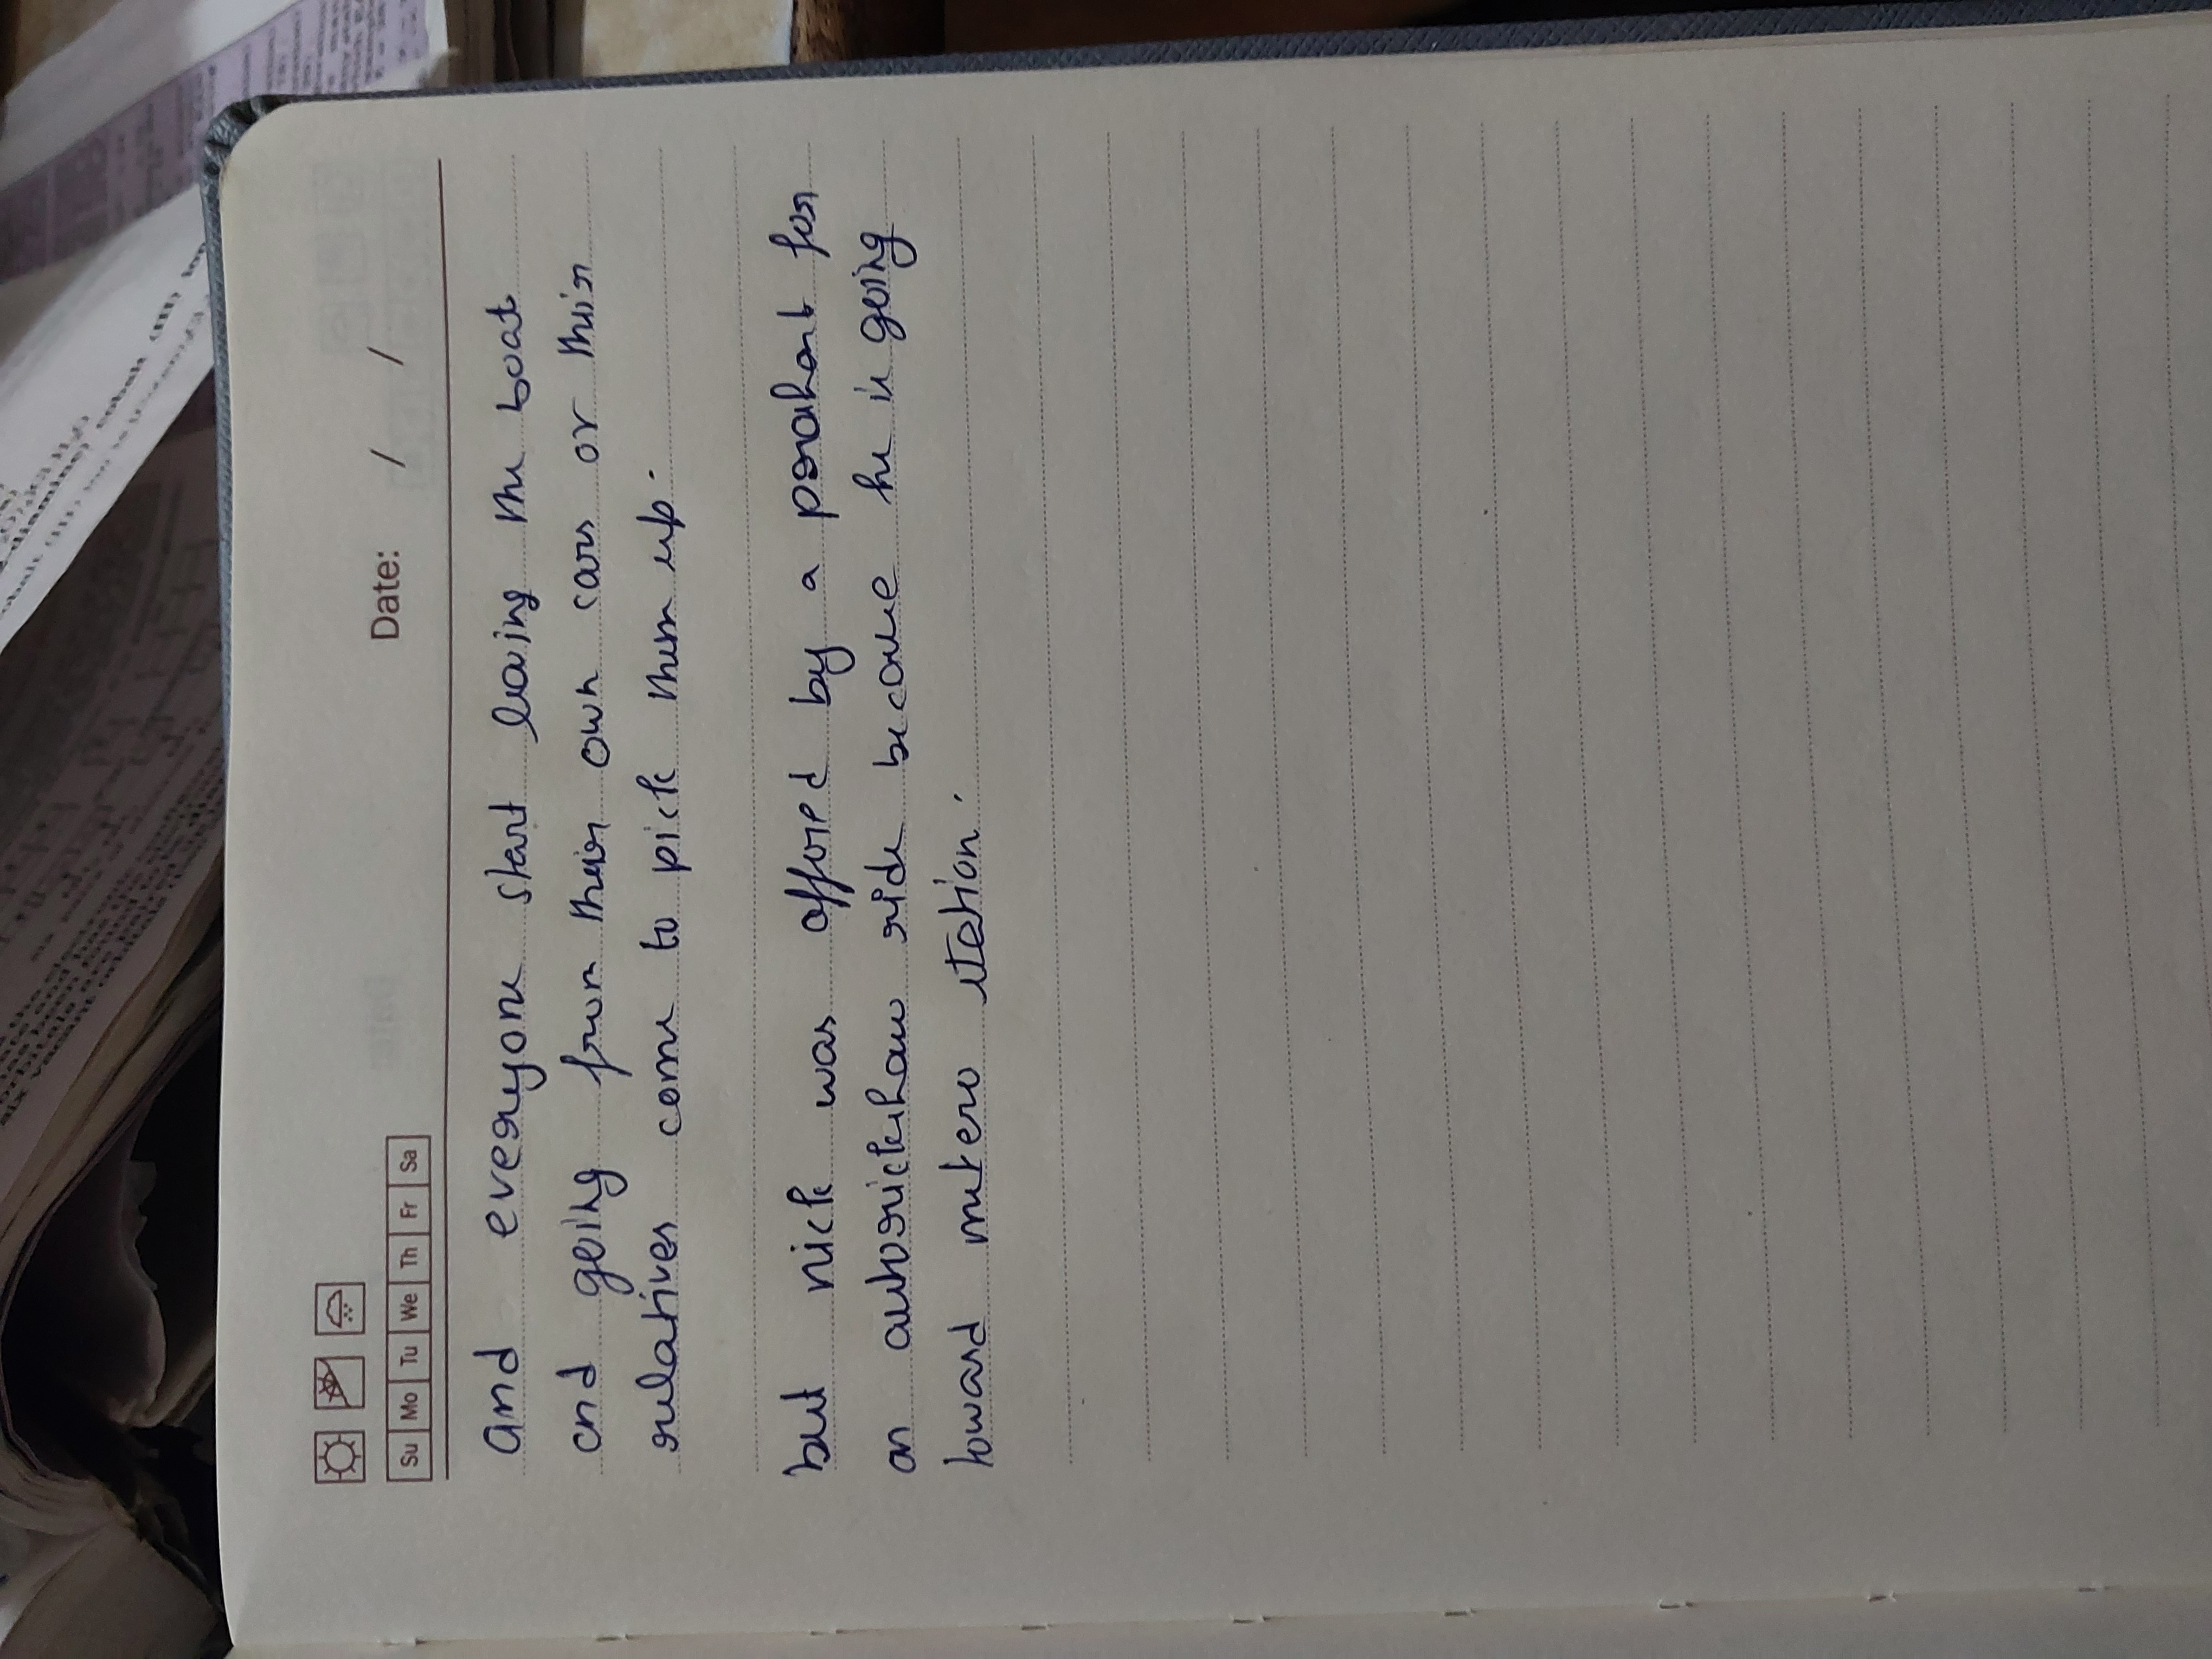 Su Mo Tu We Th Fr Sa
Date: / /
and everyone start leaving the boat
and going from their own cars or their
relatives come to pick them up.
but nick was offored by a prashant for
an autorickshaw ride because he is going
toward metero station.
cobalt (III) ion